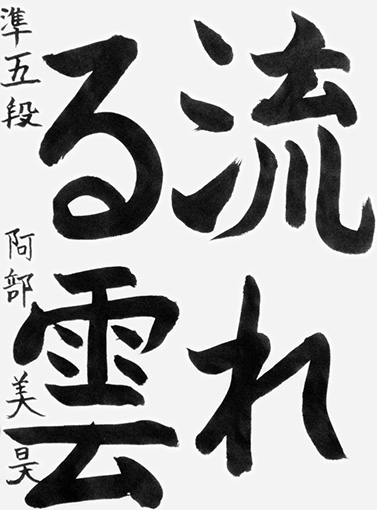 流れ
る雲
準五段 阿部 美昊